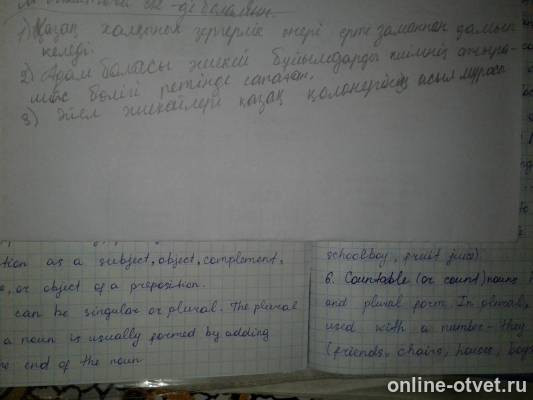 1) Қазақ халқының зергерлік өнері ерте заманнан дамып
келеді.
2) Адам баласы әшекей бұйымдарды киімнің ажыра-
мас бөлігі ретінде санаған.
3) Әйел әшекейлері қазақ қолөнерінің асыл мұрасы
tion as a subject, object, complement,
or object of a preposition.
can be singular or plural. The plural
a noun is usually formed by adding
end of the noun
schoolboy, fruit juice)
6. Countable (or count) nouns
and plural form. In plural,
used with a number - they
(friends, chairs, houses, boys
online-otvet.ru